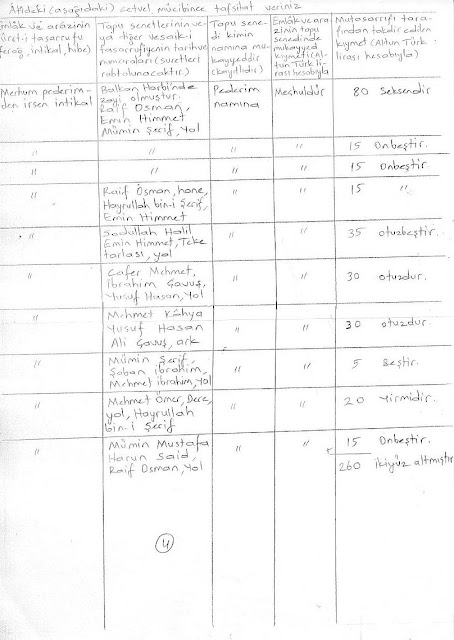 Âtideki (aşağıdaki) cetvel mûcibince tafsilat veriniz
Emlâk ve arâzinin
sûret-i tasarrufu
ferağ, intikal, hibe)
Tapu senetlerinin ve-
ya diğer vesaik-i
tasarrufiyenin tarih ve
numaraları (suretleri
rabtolunacaktır.)
Tapu sene-
di kimin
namına mu-
kayyeddir
(kayıtlıdır)
Emlâk ve ara
zinin tapu
senedinde
mukayyed
kıymeti (Al-
tun Türk li-
rası hesabıyla)
Mutasarrıfı tara-
fından takdir edilen
kıymet (Altun Türk
lirası hesabıyla)
Merhum pederim-
den irsen intikal
Balkan Harbi'nde
zayi olmuştur.
Raif Osman,
Emin Himmet
Mümin Şerif, yol
Pederim
namına
Meçhuldür
80 Seksendir
" " " " 15 Onbeştir.
" " " " 15 Onbeştir.
" Raif Osman, hane,
Hayrullah bin-i Şerif,
Emin Himmet
" " 15 "
" Sadullah Halil
Emin Himmet, Teke
tarlası, yol
" " 35 otuzbeştir.
" Cafer Mehmet,
İbrahim Çavuş,
Yusuf Hasan, Yol
" " 30 otuzdur.
" Mehmet Kâhya
Yusuf Hasan
Ali Çavuş, ark
" " 30 otuzdur.
" Mümin Şerif,
Şaban İbrahim,
Mehmet İbrahim, yol
" " 5 Beştir.
" Mehmet Ömer, Dere,
yol, Hayrullah
bin-i Şerif
" " 20 Yirmidir.
" Mümin Mustafa
Harun Said,
Raif Osman, yol
" " 15 Onbeştir.
260 ikiyüz altmıştır
4